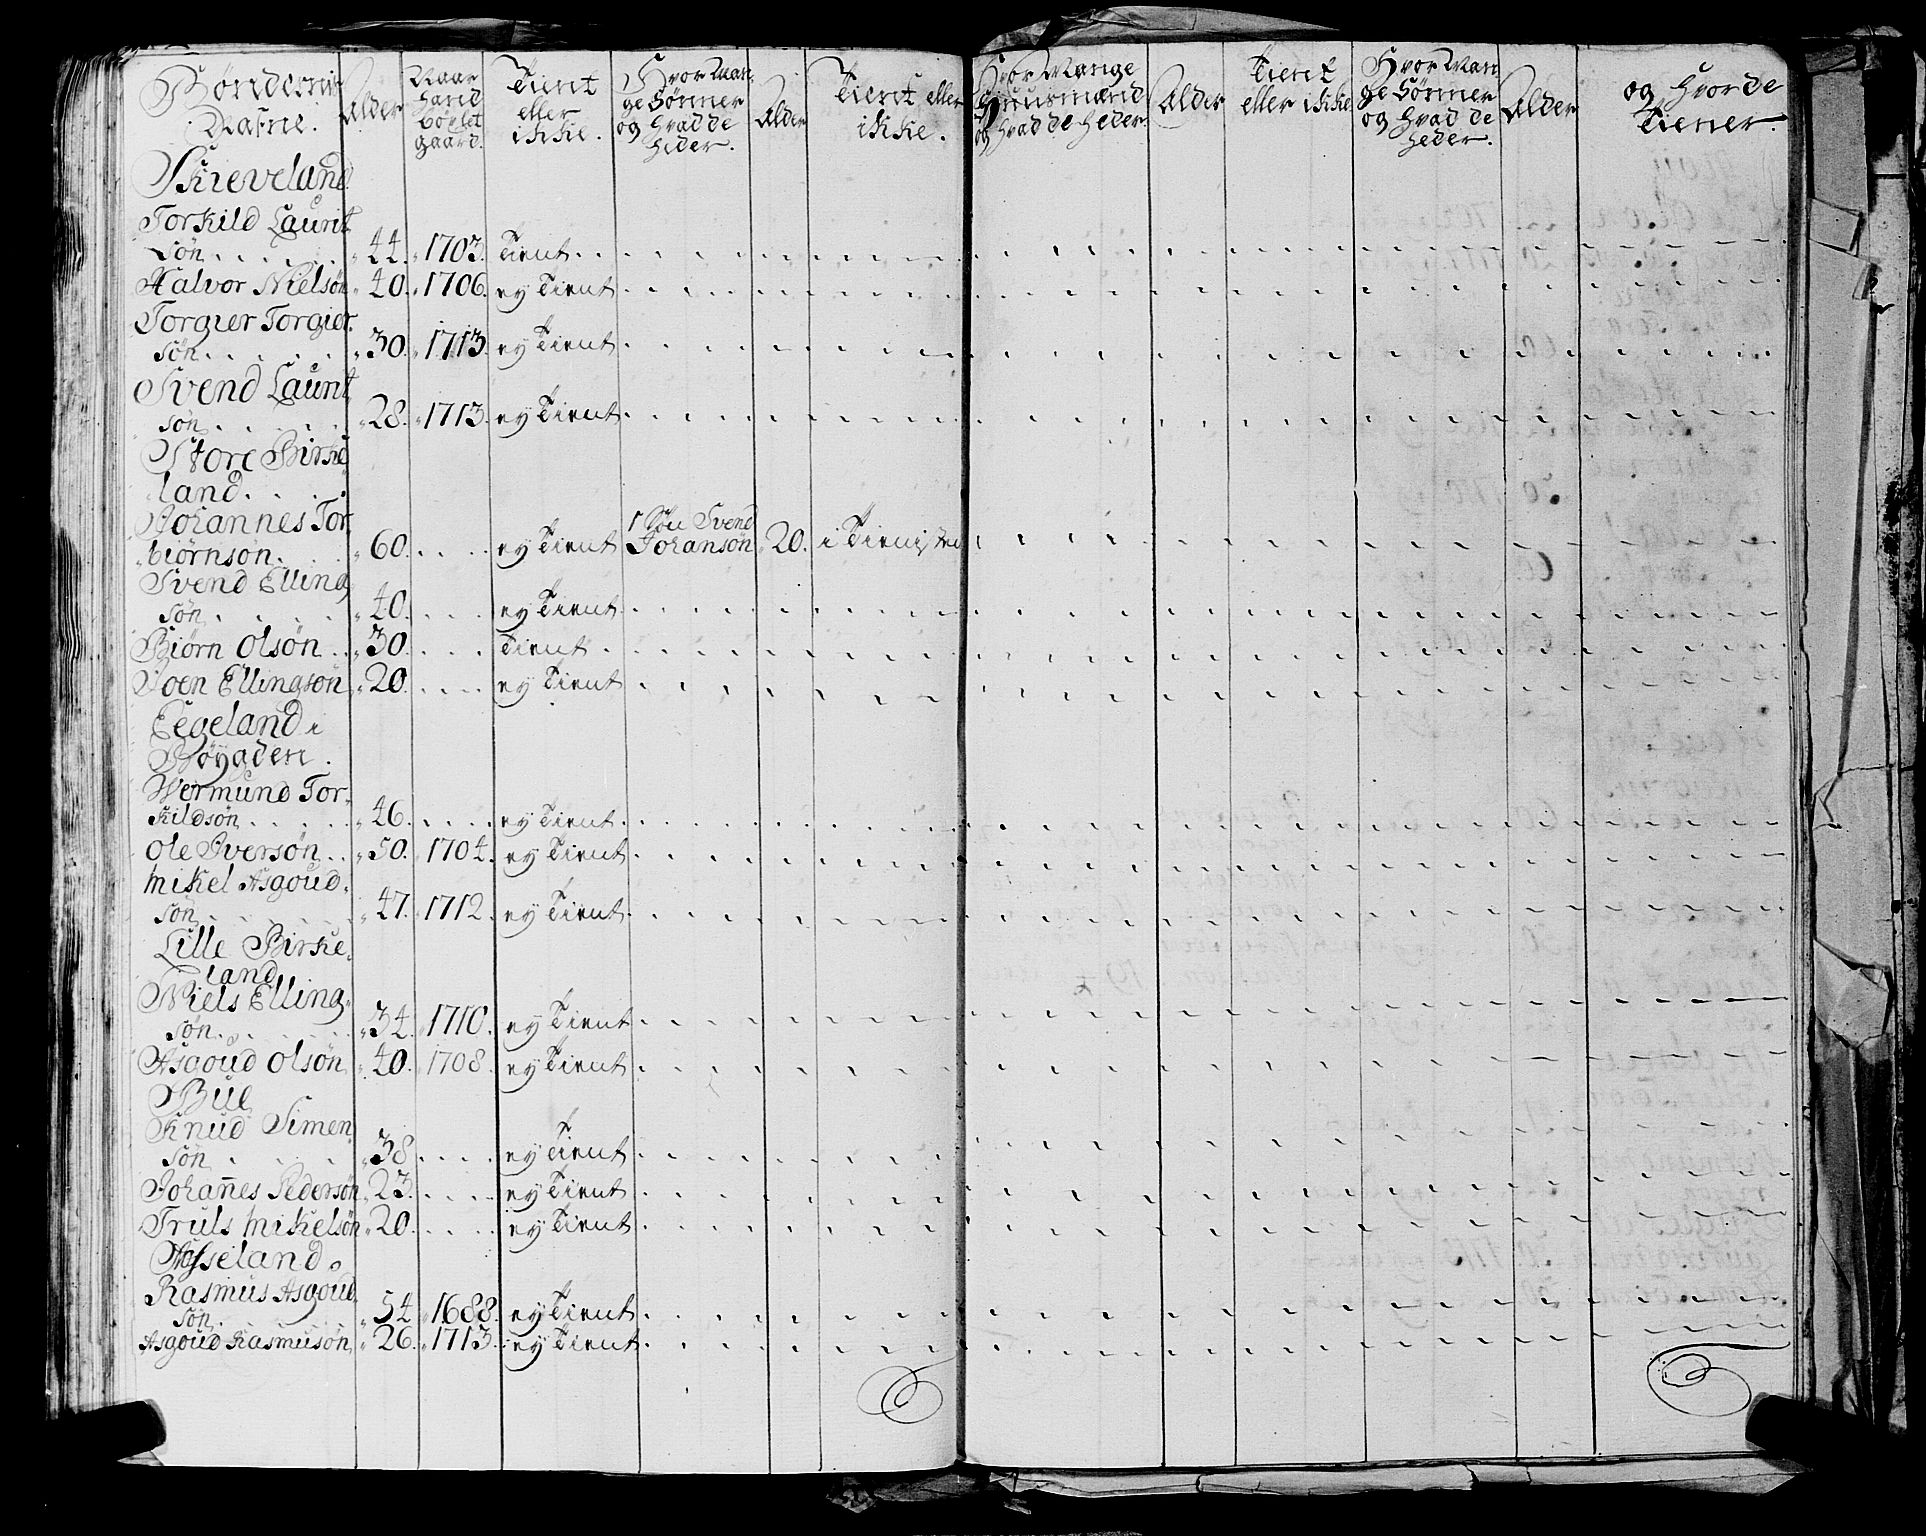 Bøndernis Nafne. Alder Naar Hand Bøxlet gaard. Tient eller ikke. Hvor Man- ge Sønner og Hvad de Heder. Alder Tient eller ikke. Hvor Mange Huusmænd og Hvad de Heder Alder Tient eller ikke Hvor Man ge Sønner og Hvad de Heder. Alder og Hvor de Tiener.
Skieveland
Torkild Laurit
søn 44. 1703. Tient
Halvor Nielsøn 40. 1706. ey Tient
Torgier Torgier
søn 30. 1713. ey Tient
Svend Laurit
søn 28. 1713. ey Tient
Store Birke
land.
Johannes Tor
biørnsøn. 60. ey Tient 1 Søn Svend Johansøn 20. i Tienisten
Svend Elling
søn 40. ey Tient
Biørn Olsøn 30. Tient
Joen Ellingsøn 20. ey Tient
Eegeland i
Bøygden.
Wermund Tor-
kildsøn 46. ey Tient
Ole Iversøn 50. 1704. ey Tient
Mikel Asgoud-
søn 47. 1712. ey Tient
Lille Birke-
land
Niels Elling-
søn. 34. 1710. ey Tient
Asgoud Olsøn 40. 1708. ey Tient
Bue
Knud Simen
søn 38 ey Tient
Johañes Pedersøn 23. ey Tient
Truls Mikelsøn 20. ey Tient
Asseland.
Rasmus Asgoud
søn. 54. 1688. ey Tient
Asgoud Rasmusøn 26. 1713. ey Tient